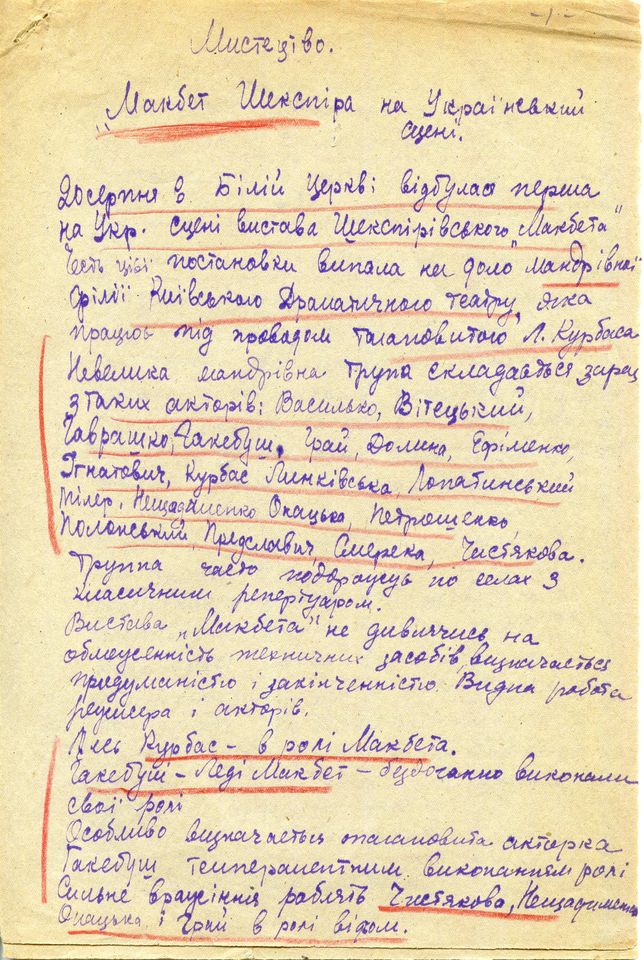 -1-
Мистецтво.
„Макбет Шекспіра на Український
сцені".
20 серпня в Білій Церкві відбулася перша
на Укр. сцені вистава Шекспірівського „Макбета"
Честь цієї постановки випала на долю „мандрівної
філії Київського Драматичного театру, яка
працює під проводом талановитого Л. Курбаса
Невелика мандрівна трупа складається зараз
з таких акторів: Василько, Вітецький,
Гаврашко, Гакебуш, Грай, Долина, Ефіменко,
Ігнатович, Курбас Линківська, Лопатинський
Пілер, Нещадименко Опацько, Петрошенко
Полонський, Предславич, Смерека, Чистякова.
Труппа часто подорожує по селах з
класичним репертуаром.
Вистава „Макбета" не дивлячись на
обмеженність техничних засобів визначається
придуманістю і закінченністю. Видна робота
режисера і акторів.
Лесь Курбас - в ролі Макбета.
Гакебуш - Леді Макбет - бездоганно виконали
свої ролі
Особливо визначається талановита акторка
Гакебуш темпераментним виконанням ролі
Сильне вражіння роблять Чистякова, Нещадименко
Опацька і Грай в ролі відьом.